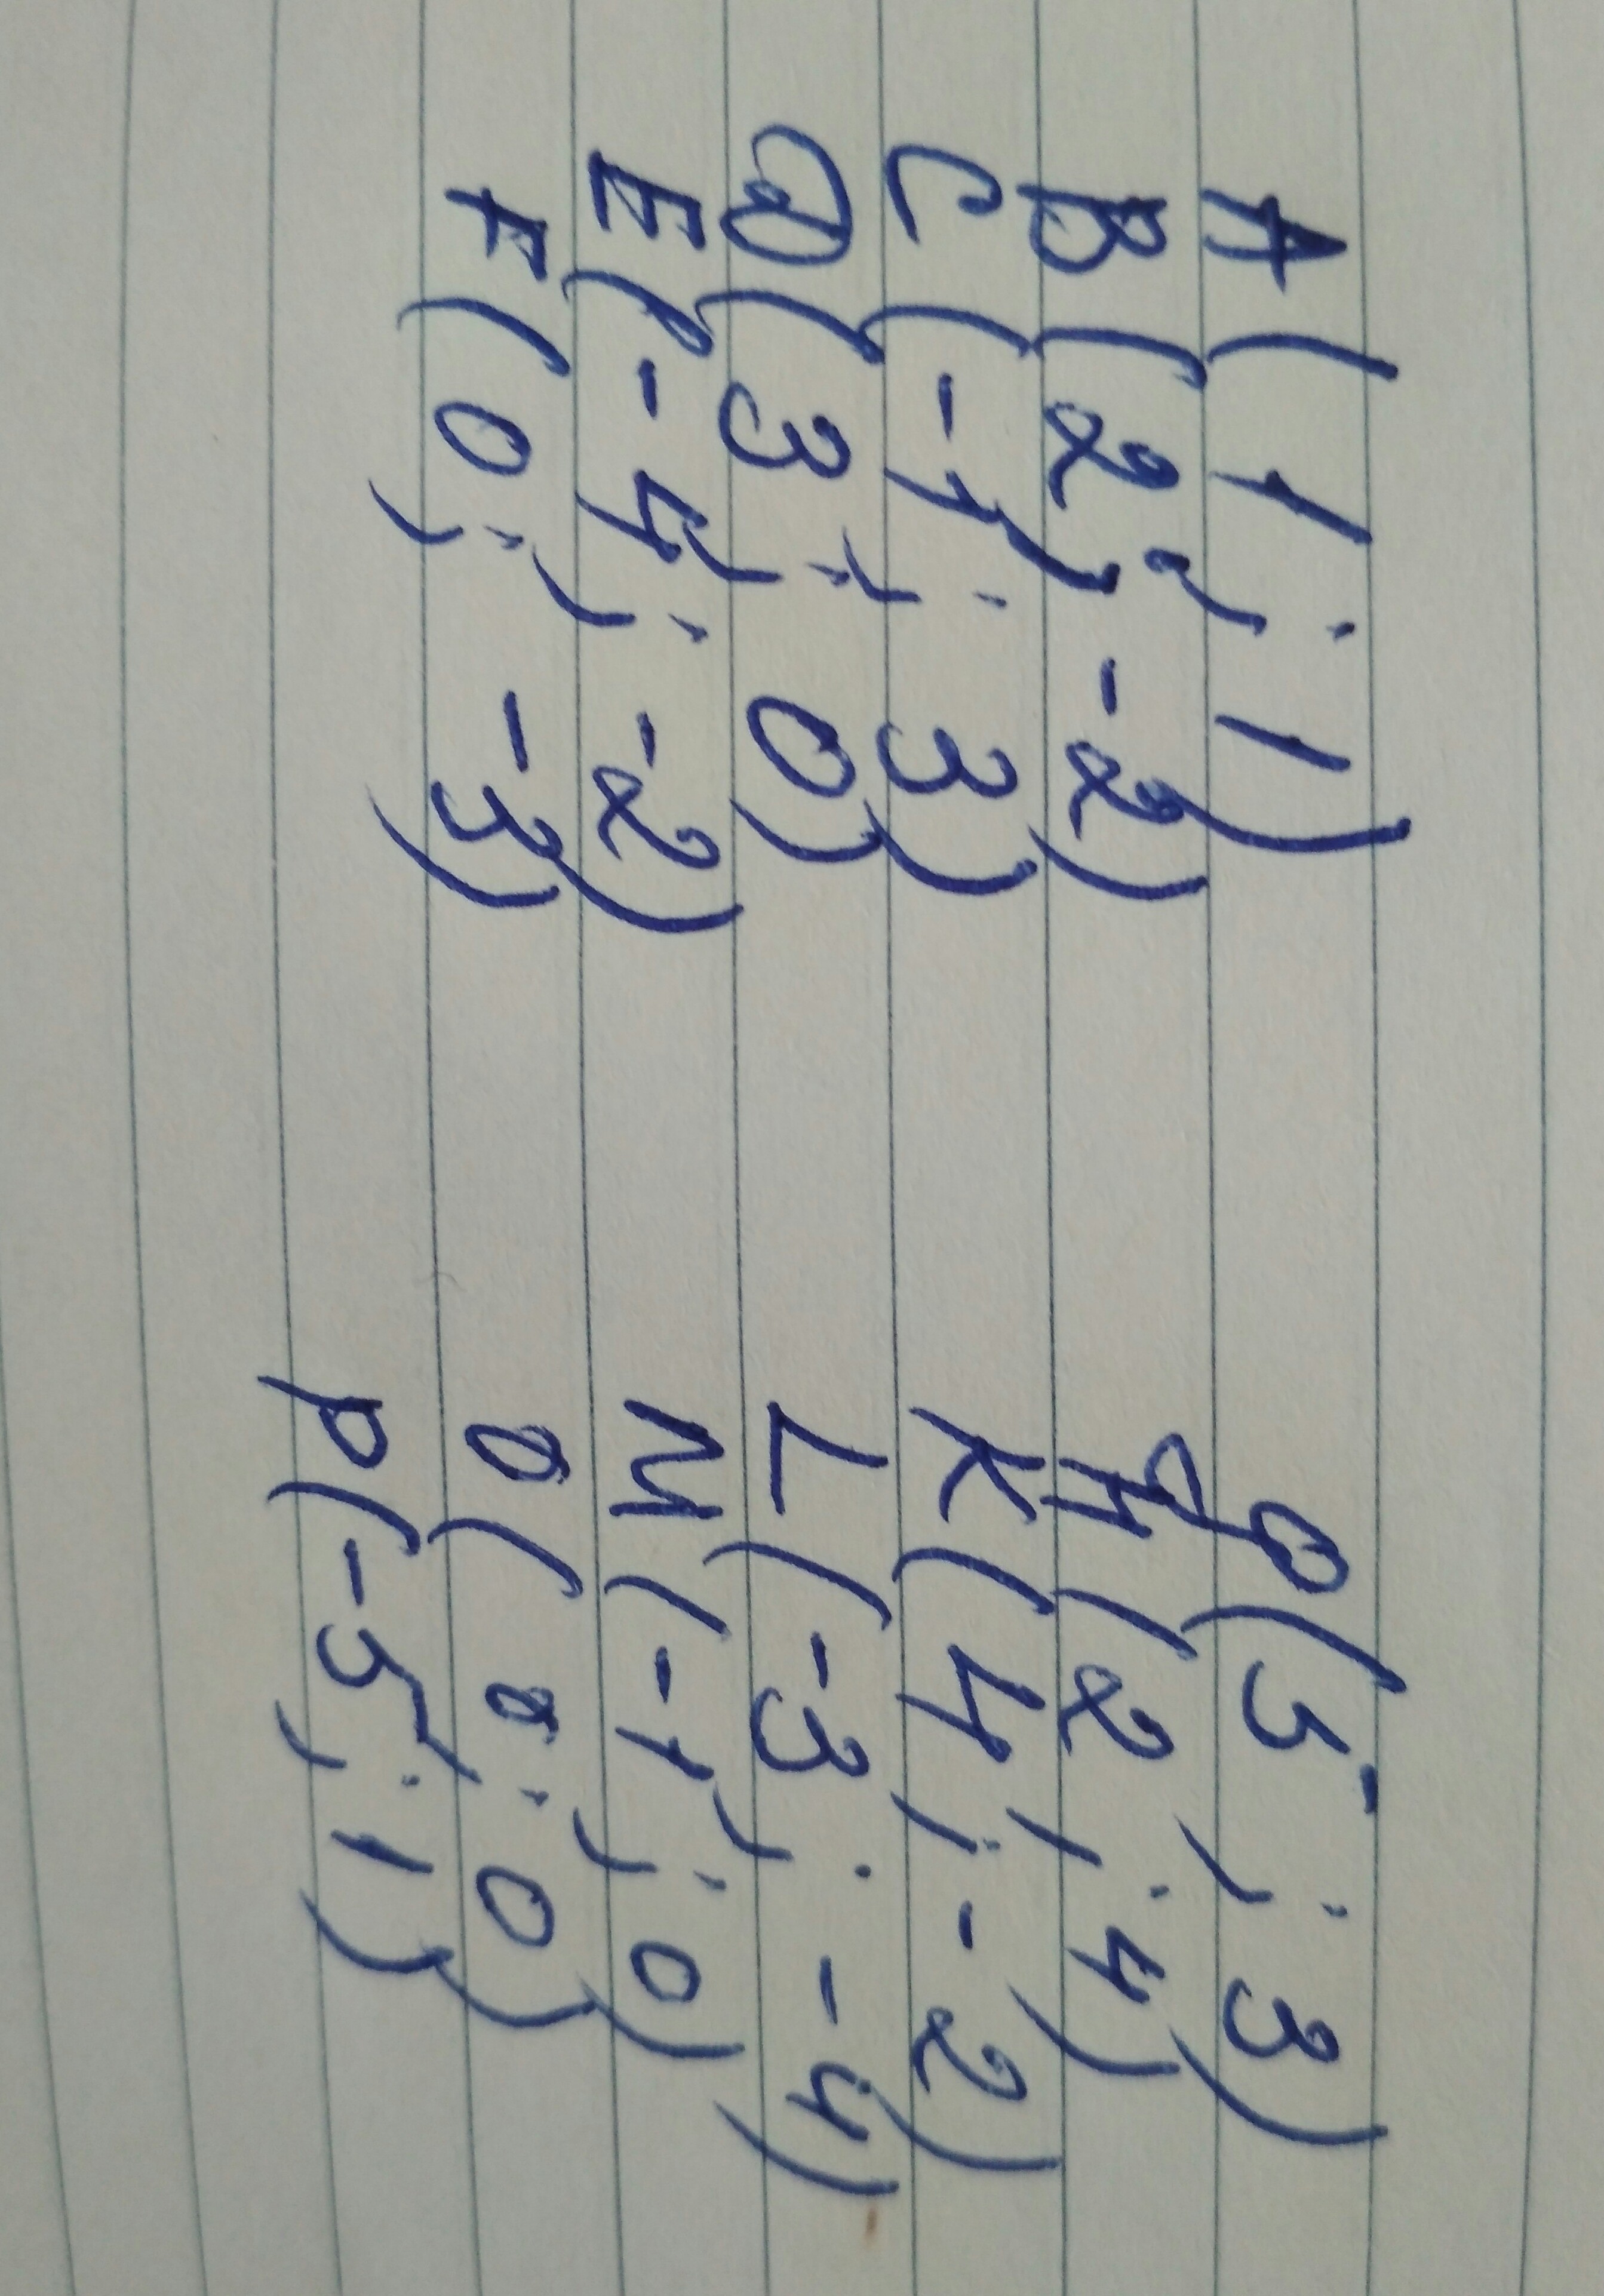 A (1; 1)
B (2; -2)
C (-1; 3)
D (3; 0)
E (-4; -2)
F (0; -3)
g (5; 3)
H (2; 4)
K (4; -2)
L (-3; -4)
M (-1; 0)
O (0; 0)
P (-5; 1)